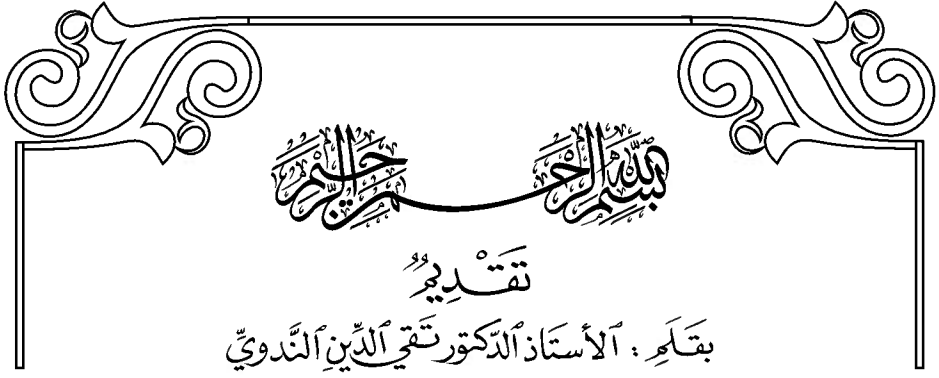 بِسْمِ اللهِ الرَّحْمٰنِ الرَّحِيْمِ
تَقْدِيمٌ
بِقَلَمِ : ٱلأستَاذ ٱلدّكتور تَقي ٱلدِّينِ ٱلنَّدويِّ